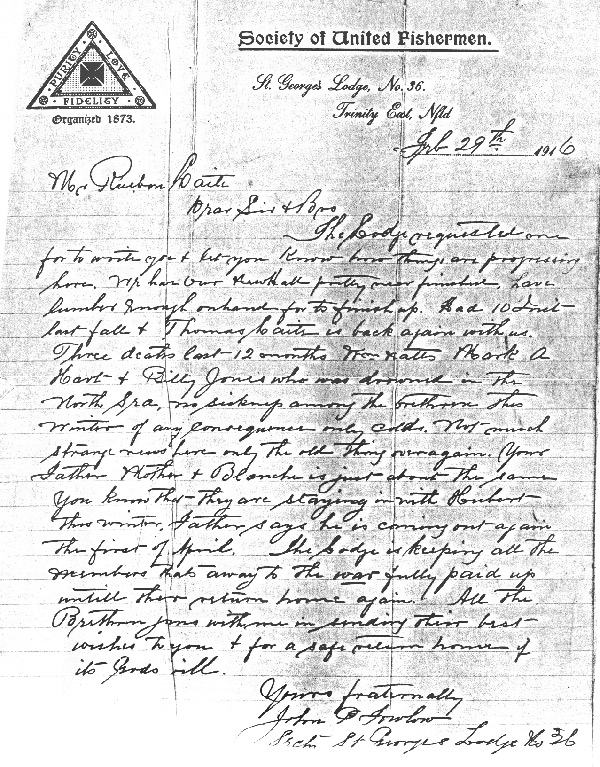 Society of United Fishermen.
PURITY LOVE
FIDELITY
Organized 1873.
St. George's Lodge, No. 36.
Trinity East, Nfld
Feb 29th 1916
Mr Rueben Waite
Dear Sir & Bro
The Lodge requested me
for to write you & let you know how things are progressing
here. We have our new Hall pretty near finished, have
lumber enough on hand for to finish up. Had 10 Init
last fall & Thomas Waite is back again with us.
Three deaths last 12 months Mark A
Hart & Billy Jones who was drowned in the
North Sea, no sickness among the brethren this
winter of any consequence only colds. Not much
strange news here only the old thing over again. Your
Father Mother & Blanche is just about the same
you know that they are staying in with Hubert
this winter, Father says he is coming out again
the first of April. The Lodge is keeping all the
members that away to the war fully paid up
untill their return home again. All the
Brethren joins with me in sending their best
wishes to you & for a safe return home if
its Gods will.
Yours fraternally
John P Fowlow
Secty St Georges Lodge No 36